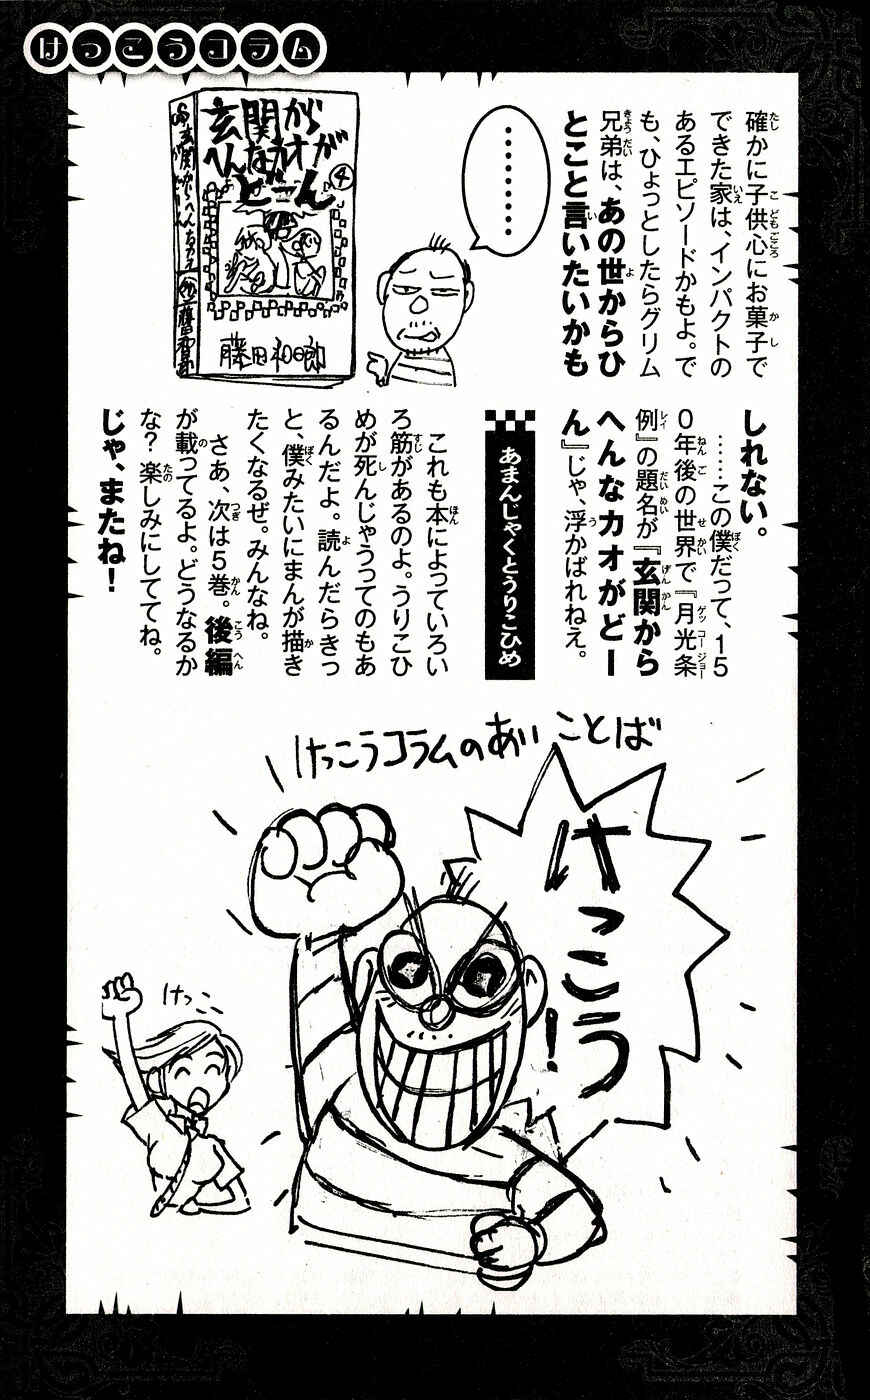 けっこうコラム
確かに子供心にお菓子で
できた家は、インパクトの
あるエピソードかもよ。で
も、ひょっとしたらグリム
兄弟は、あの世からひ
とこと言いたいかも
しれない。
……この僕だって、15
0年後の世界で『月光条
例』の題名が『玄関から
へんなカオがどーー
ん』じゃ、浮かばれねえ。
………
玄関から
へんなカオが
どーん
4
藤田和日郎
あまんじゃくとうりこひめ
これも本によっていろい
ろ筋があるのよ。うりこひ
めが死んじゃうってのもあ
るんだよ。読んだらきっ
と、僕みたいにまんが描き
たくなるぜ。みんなね。
さあ、次は5巻。後編
が載ってるよ。どうなるか
な？楽しみにしててね。
じゃ、またね！
けっこうコラムのあいことば
けっこう！
けっこー